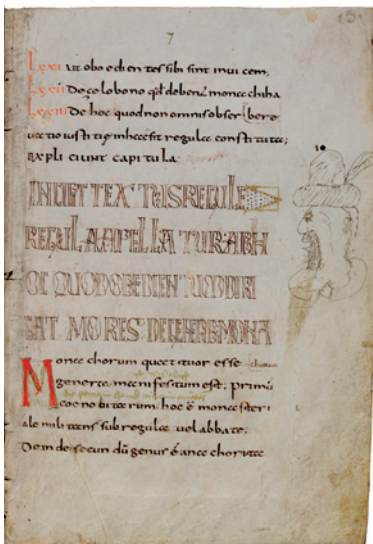 13
7
Lxxi ut oboedientes sibi sint inuicem,
Lxxii De zelo bono qd debent monachi ha
Lxxiii De hoc quod non omnis obser bere
uatio iustitię in hac sit regula constituta;
Expliciunt capitula
INCIPIT TEXTUS REGULE
REGULA APELLATUR AB H
OC QUOD OBEDIENTIUM DIRI
GAT MORES DE GENERE MONA
Monachorum quattuor esse chorum
genera manifestum est; primū
coenobitarum hoc ē monasteri
ale militans sub regula uel abbate;
Deinde secundū genus ē anachorita